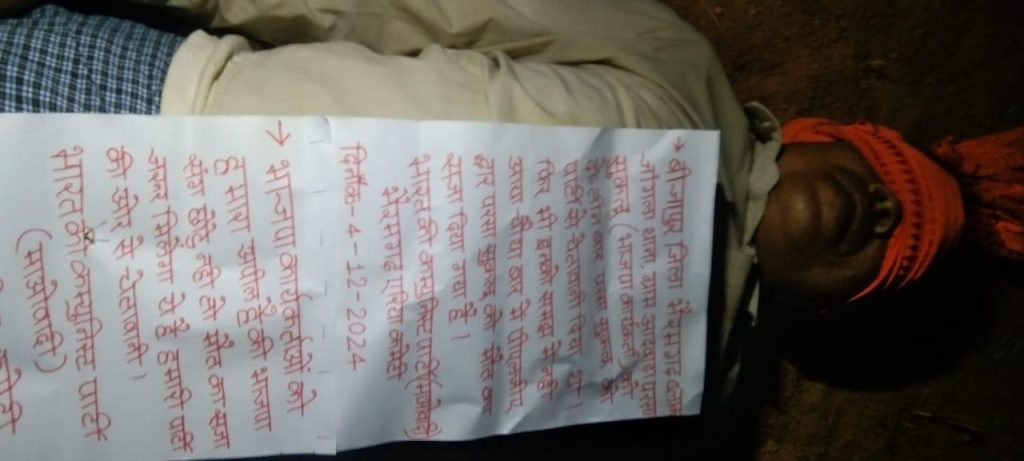 → बीजापुर जिला भैरमगढ़ ब्लाक
जांगला थाना, ग्राम आदवाड़ा परसा
सुकलू (भाजपा कार्यकर्ता) को
के तीन बार
पहले से चेतावनी दिया था।
फिर भी इनको समझ में नही
आया चौथा बार में पीएलजीए,
द्वारा परसा सुकलू को मौत का
सजा दिया गया है।
भारत की कम्युनिस्ट पार्टी (माओवादी)
भैरमगढ़ एरिया कमेटी
दिनांक - 4-12-2024
→ भाजपा कार्यकर्ताओं को
हमारा अपील है की भाजपा
संघ छोड़े नही तो मौत का सजा
जरूर मिलेगा ये है हमारी पार्टी
की ओर से चेतावनी।
भारत की कम्युनिस्ट पार्टी
(माओवादी)